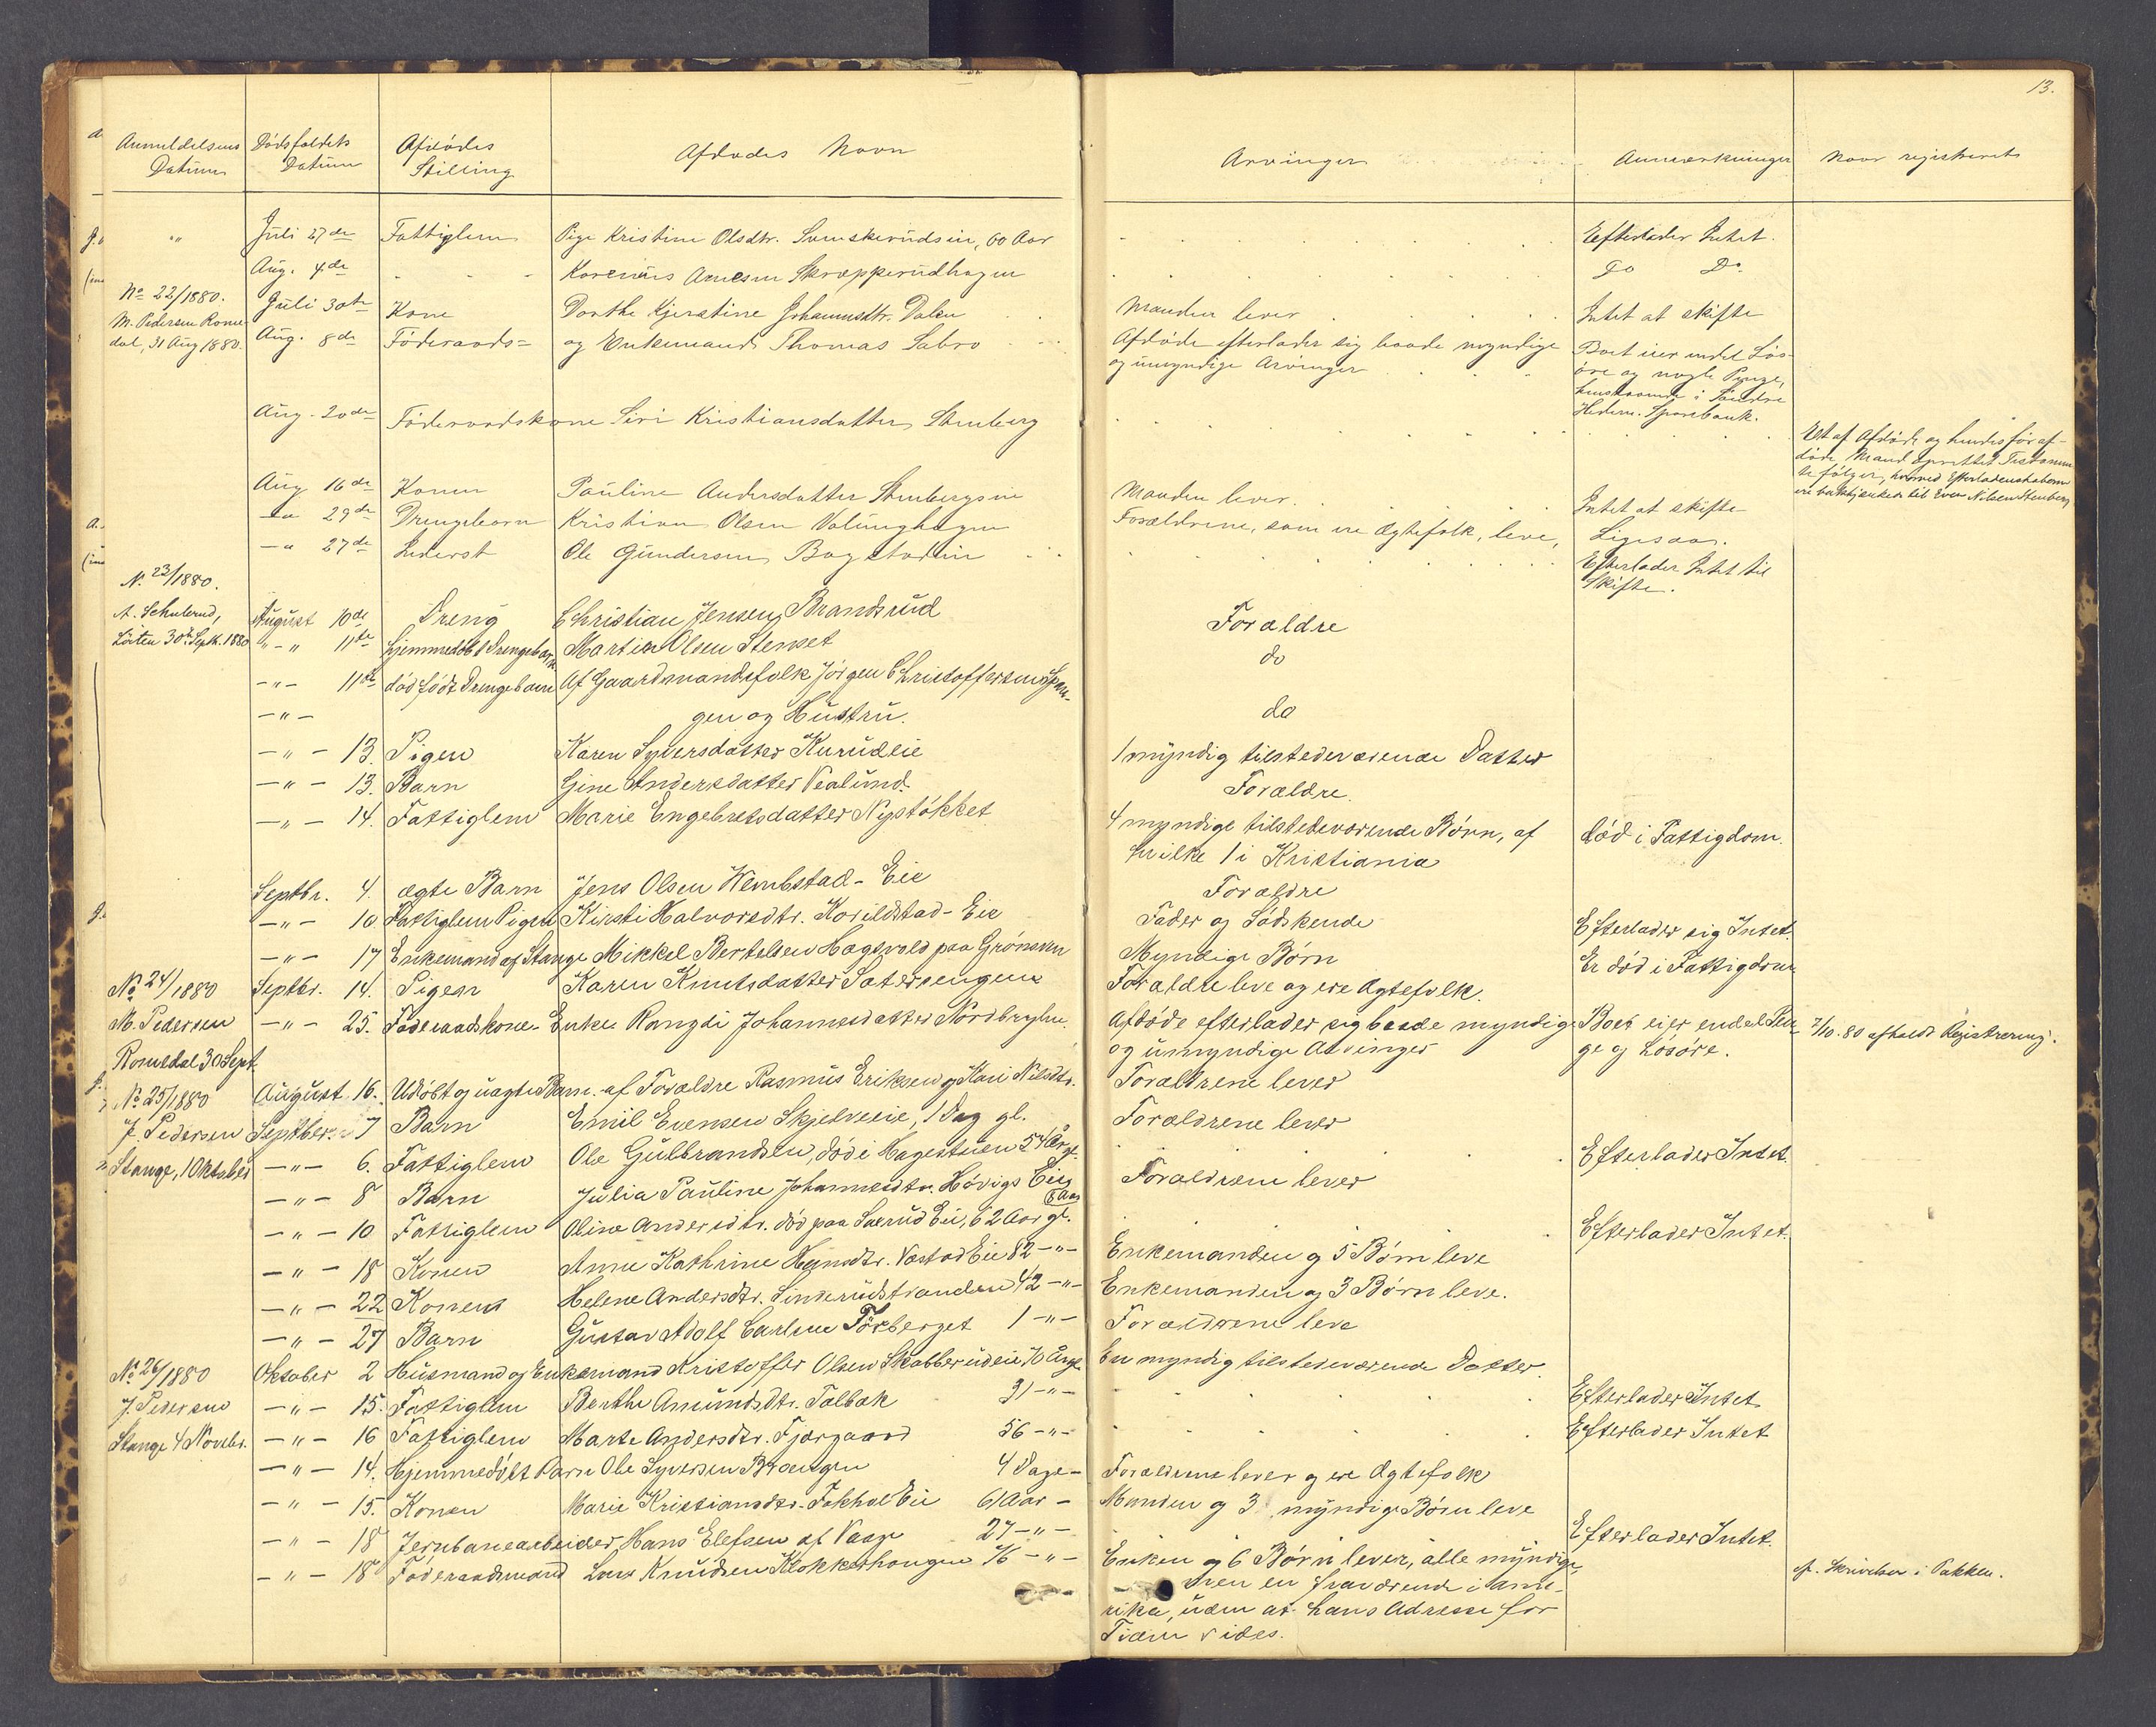 13.
Anmeldelsens Datum Dødsfaldets Datum Afdødes Stilling Afdødes Navn Arvinger Anmærkninger Naar registreret
" Juli 27de Fattiglem Pige Kristine Olsdtr. 60 Aar Efterlader Intet.
Aug. 4de - - - Arnesen Skræpperudhagen Do Do
No 22/1880. Juli 30te Kone Dorthe Kjerstine Johannesdtr. Dalen Manden lever Intet at skifte
M. Pedersen Romedal, 31 Aug 1880. Aug. 8de Føderaads= og Enkemand Thomas Sabro Afdøde efterlader sig baade myndige og umyndige Arvinger Boet eier endel Løsøre og nogle Penge, i Søndre Hedem. Sparebank.
Aug. 20de Føderaadskone Siri Kristiansdatter Stenberg
Et af Afdøde og hendes før afdøde Mand oprettet Testamente følger, hvorved Efterladenskaberne ere til Even Nilsen Stenberg
Aug 16de Konen Pauline Andersdatter Stenbergseie Manden lever. Intet at skifte
—" 29de Drengebarn Kristian Olsen Volunghagen Forældrene, som ere Ægtefolk, leve, Ligesaa.
—" 27de Inderst Ole Gundersen Bagstadeie Efterlader Intet til Skifte.
No 23/1880.
A. Schulerud, August 10de Dreng Christian Jensen Brandsrud Forældre
Løiten 30te Septk. 1880 "-" 11te Hjemmedøbt Drengebarn Martin Olsen Stenset do
-"- 11te dødfødt Drengebarn Af Gaardmandsfolk Jørgen Christoffersen
—"— gen og Hustru. do
—"— 13. Pigen Karen Syversdatter Kurudeie 1 myndig tilstedeværende Datter
—"— 13. Barn Gine Andersdatter Vealund. Forældre.
—"— 14. Fattiglem Marie Engebretsdatter Nystøkket 4 myndige tilstedeværende Børn, af hvilke 1 i Kristiania død i Fattigdom.
Septbr. 4. ægte Barn Jens Olsen Vembstad-Eie Forældre
—"— 10 Fattiglem Pigen Kirsti Halvorsdtr. Korildstad-Eie Fader og Sødskende Efterlader sig Intet.
—"— 17 Enkemand af Stange Mikkel Bertelsen Hagsvold paa Grønsveen Myndige Børn Er død i Fattigdom
No 24/1880 Septbr. 14. Pigen Karen Knutsdatter Sæterengen Forældre leve og ere Ægtefolk.
M. Pedersen —"— 25. Føderaadskone- Enke Rangdi Johannesdatter Nordbryhn. Afdøde efterlader sig baade myndige og umyndige Arvinger Boet eier endel Penge og Løsøre. 7/10. 80 afholdt Registrering.
Romedal 30 Sept.
No 25/1880 August 16. Udøbt og uægte Barn. af Forældre Rasmus Eriksen og Kari Nilsdtr. Forældrene lever
J. Pedersen Septber. 7 Barn Emil Evensen Skjelveeie, 1 Dag gl. Forældrene lever
Stange, 1 Oktober —"— 6. Fattiglem Ole Gulbrandsen, død i Hagestuen 54 Aar gl. Efterlader Intet.
—"— 8 Barn Julia Pauline Johannesdtr. Høvigs Eie 8 Aar Forældrene lever
—"— 10 Fattiglem Oline Andersdtr. død paa Saxrud Eie, 62 Aar gl. Efterlader Intet.
—"— 18 Konen Anne Kathrine Hansdtr. Vostad Eie 82 —"— Enkemanden og 5 Børn leve
—"— 22 Konen Helene Andersdtr. Linderudstranden 42 —"— Enkemanden og 3 Børn leve.
—"— 27 Barn Gustav Adolf Carlsen Tørberget 1 —"— Forældrene leve
No 26/1880 Oktober 2 Husmand og Enkemand Kristoffer Olsen Skabberudeie 70 Aar gl. En myndig tilstedeværende Datter.
J. Pedersen —"— 15. Fattiglem Berthe Amundsdtr. Talbak 31 —"— Efterlader Intet
Stange 4 Novebr. —"— 16 Fattiglem Marte Andersdtr. Fjærgaard 56 —"— Efterlader Intet
—"— 14. Hjemmedøbt Barn Ole Syversen Brængen 4 Dage — Forældrene lever og ere Ægtefolk
—"— 15. Konen Marie Kristiansdtr. Fokhol Eie 61 Aar — Manden og 3 myndige Børn leve
—"— 18 Jernbanearbeider Hans Elefsen af Vaage 27 —"— Efterlader Intet.
—"— 18 Føderaadsmand Lars Knudsen Klokkerhaugen 76 —"— Enken og 6 Børn lever, alle myndige, men en fraværende i Amerika, uden at hans Adresse for Tiden vides. cf. Skrivelse i Pakken.